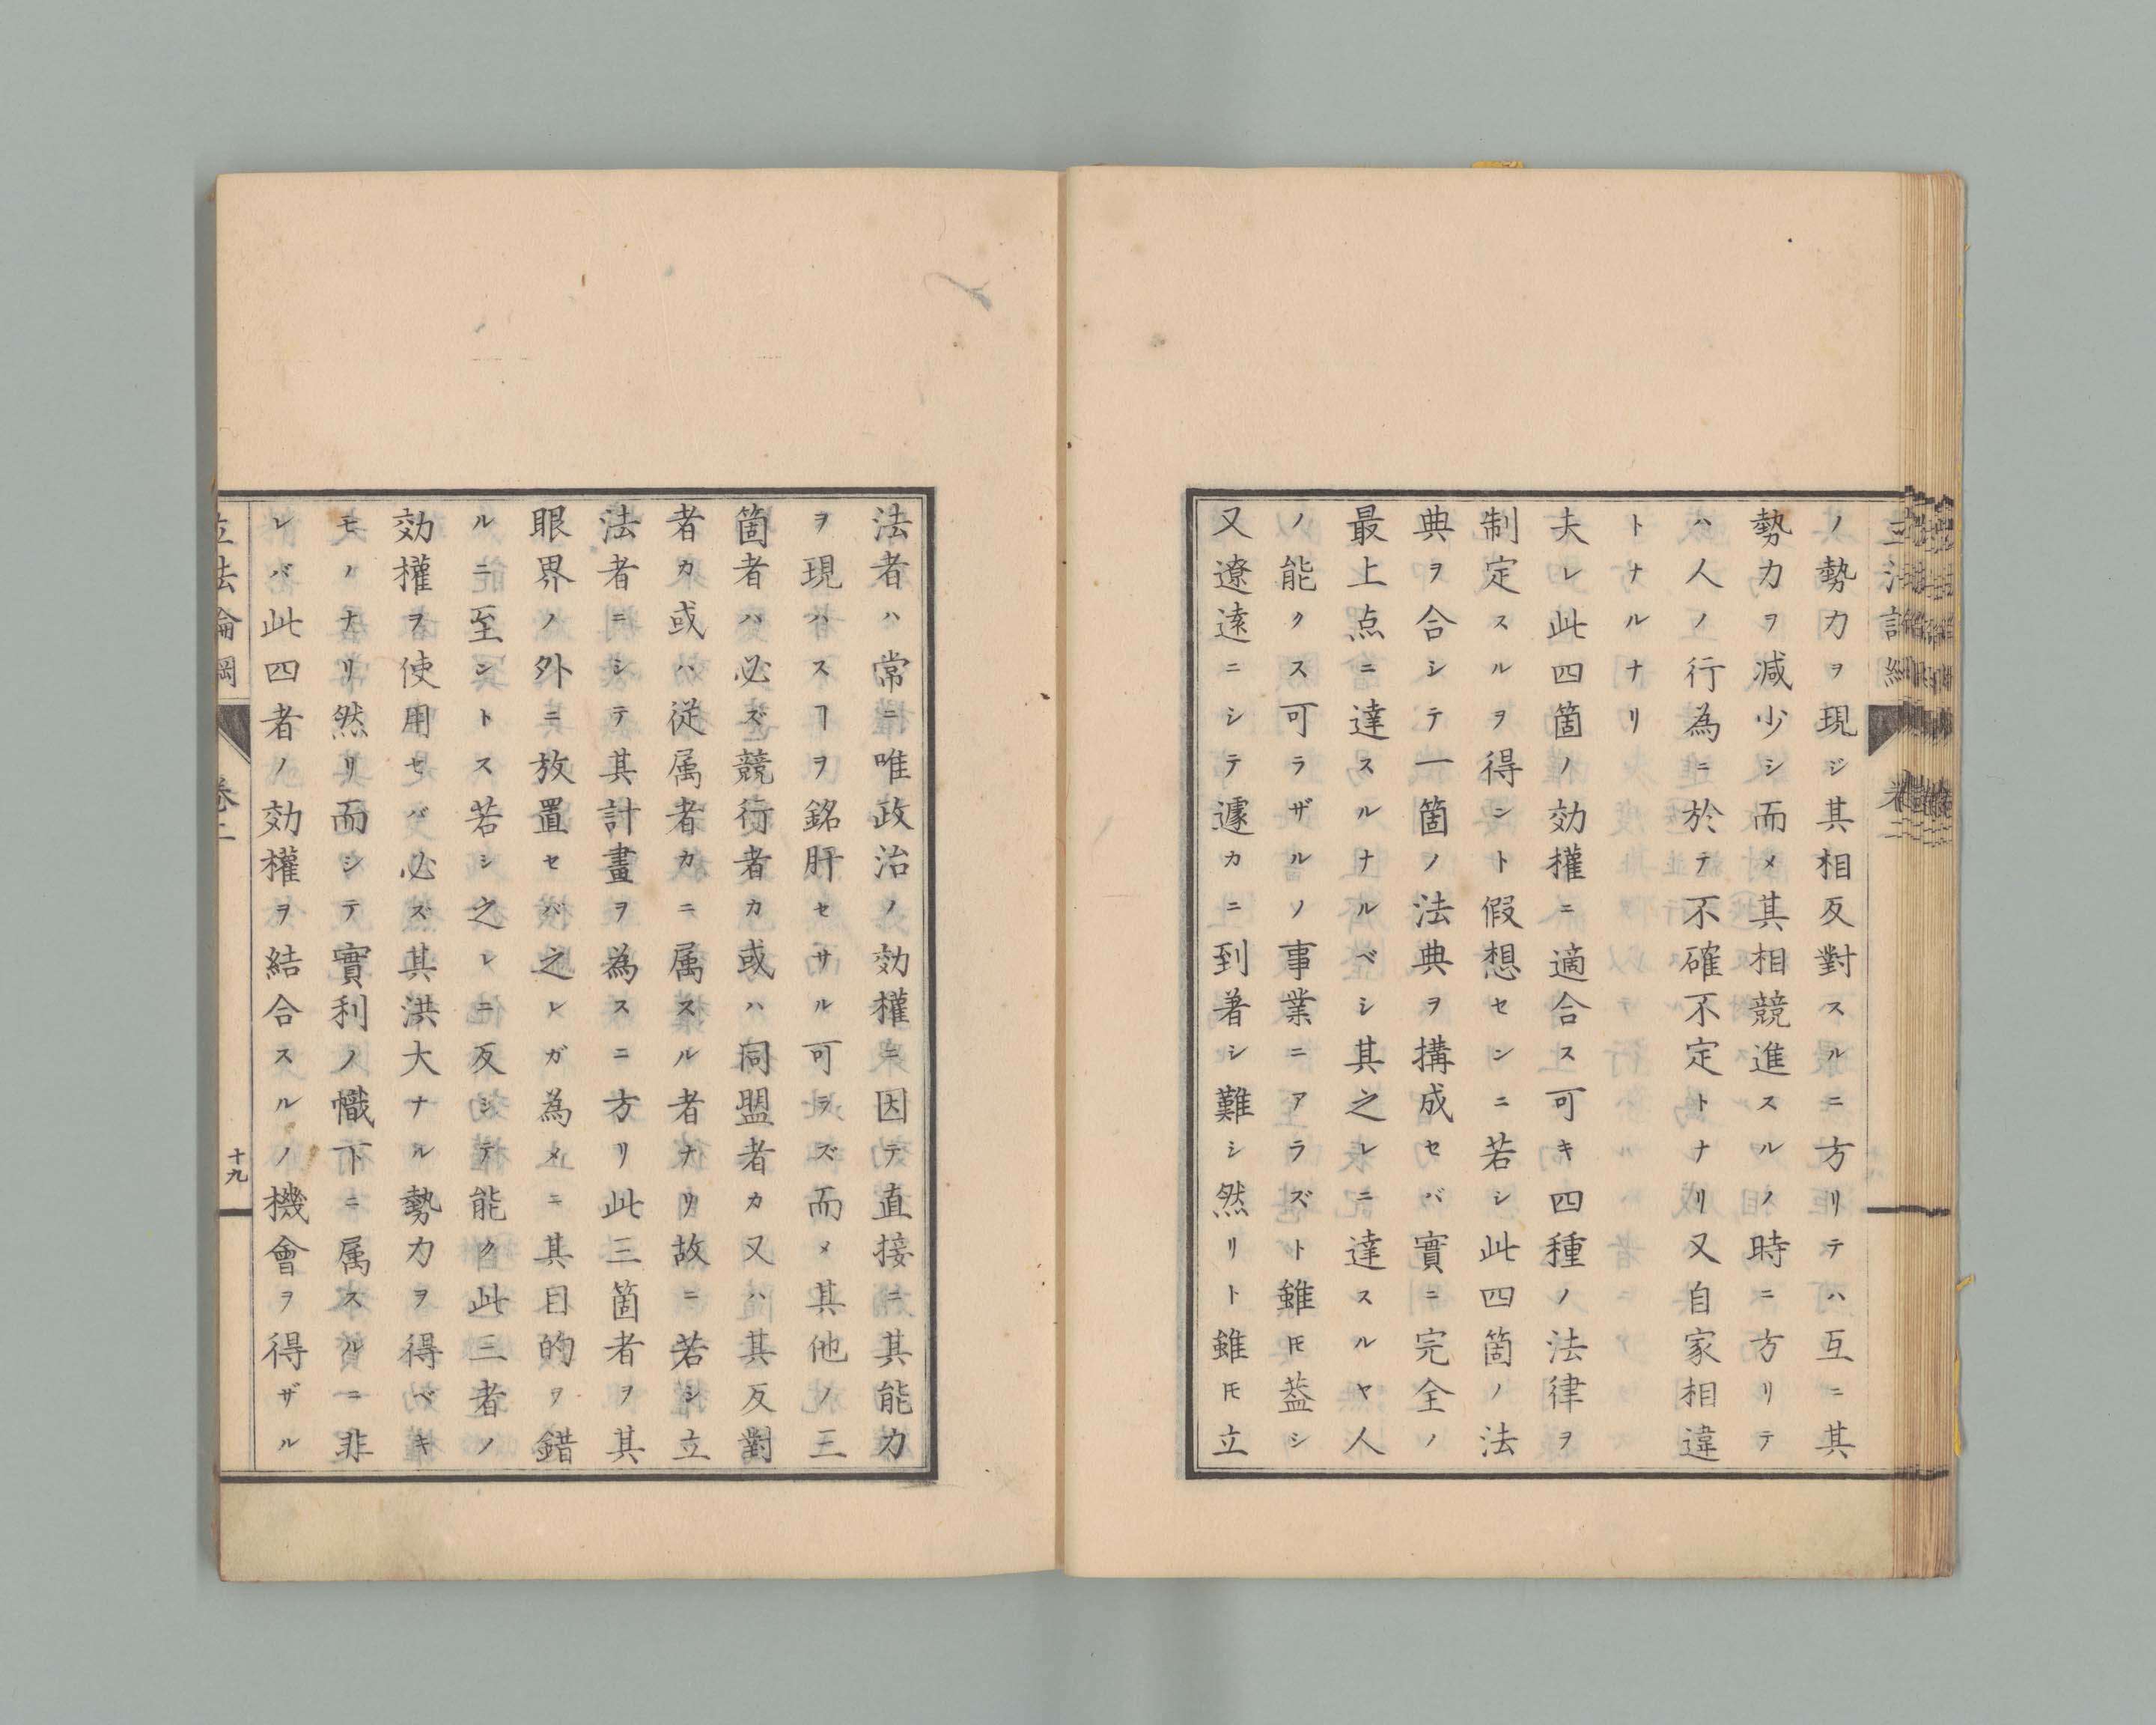 ノ勢力ヲ現ジ其相反對スルニ方リテハ互ニ其
勢力ヲ減少シ而メ其相競進スルノ時ニ方リテ
ハ人ノ行為ニ於テ不確不定トナリ又自家相違
トナルナリ
夫レ此四箇ノ効權ニ適合ス可キ四種ノ法律ヲ
制定スルヲ得ント假想センニ若シ此四箇ノ法
典ヲ合シテ一箇ノ法典ヲ搆成セバ實ニ完全ノ
最上点ニ達スルナルベシ其之レニ達スルヤ人
ノ能クス可ラザルソ事業ニアラズト雖𪜈葢シ
又遼遠ニシテ遽カニ到著シ難シ然リト雖𪜈立
法者ハ常ニ唯政治ノ効權ニ因テ直接ニ其能力
ヲ現ハスヿヲ銘肝セサル可ラズ而メ其他ノ三
箇者ハ必ズ競行者カ或ハ同盟者カ又ハ其反對
者カ或ハ從属者カニ属スル者ナリ故ニ若シ立
法者ニシテ其計畫ヲ為スニ方リ此三箇者ヲ其
眼界ノ外ニ放置セバ之レガ為メニ其目的ヲ錯
ルニ至ントス若シ之レニ反シテ能ク此三者ノ
効權ヲ使用セバ必ス其洪大ナル勢力ヲ得ベキ
モノナリ然リ而シテ實利ノ幟下ニ属スルニ非
レバ此四者ノ効權ヲ結合スルノ機會ヲ得ザル
立法論綱
卷二
十九